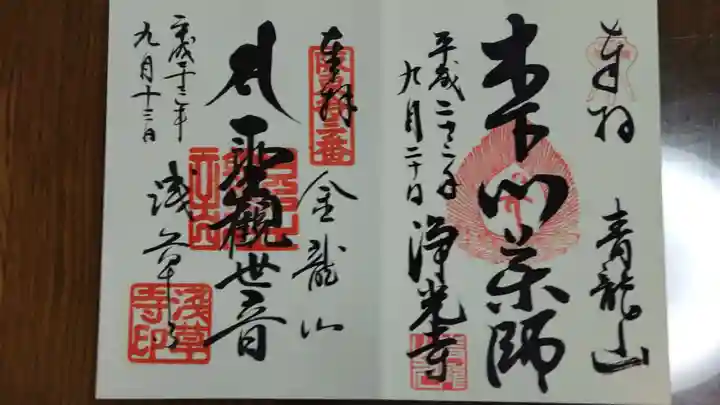 奉拝
青龍山
木下川薬師
平成二十三年
九月二十日
浄光寺
奉拝
金龍山
聖觀世音
平成二十三年
九月十三日
浅草寺
浅草
寺印